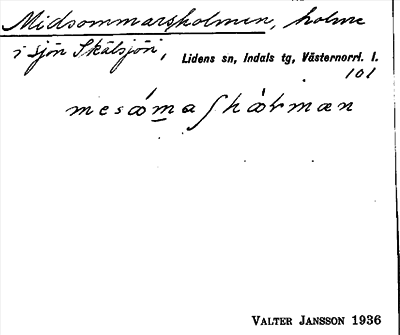 Midsommarsholmen, holme
i sjön Skälsjön, Lidens sn, Indals tg, Västernorrl. l.
101
VALTER JANSSON 1936